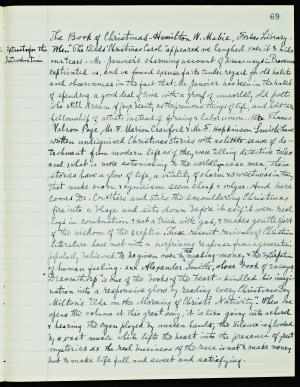 69
The Book of Christmas - Hamilton W. Mabie, Forbes Library.
Extracts from the Introduction
When "The Birds' Christmas Carol" appeared we laughed over it &
our tears. Mr. Janvier's charming account of Xmas ways in Provence
captivated us, and we found signs of its tender regard for old habits
and observances in the fact that Mr. Janvier had been in the habit
of spending a good deal of time with a group of unworldly old poets
who still dream of joy & beauty as the precious things of life, and
fellowship of artists instead of forming a labor union. Mr. Thomas
Nelson Page, Mr. F. Marion Crawford & Mr. F. Hopkinson Smith have
written unashamed Christmas stories with as little sense of
detachment from modern life as if they were telling detective tales
and, what is more astonishing to the worldly wise men, these
stories have a glow of life, a vitality of charm & sweetness in them
that make scorn & cynicism seem cheap & vulgar. And here
comes Dr. Crothers and stirs the smouldering Christmas
fire into a blaze and sits down before it as if it were real
logs in combustion & not a trick with gas, & makes gentle sport
of the wisdom of the sceptic. This recent revival of Christmas
literature have met with a surprising response from a generation
popularly believed to be given over to making money, & the
of human feeling. Alexander Smith, whose book of essays
Dreamthorp is "one of the books of the Heart" kindled his
nation into a responsive glow by reading every Christmas Day
Milton's "Ode on the Morning of Christ's Nativity". When one
opens the volume at this great song, it is like going into a church
& hearing the organ played by unseen hands; the silence is flooded
by a vast music which lifts the heart into the presence of great
mysteries. The real business of the race is not to make money
but to make life full and sweet and satisfying.